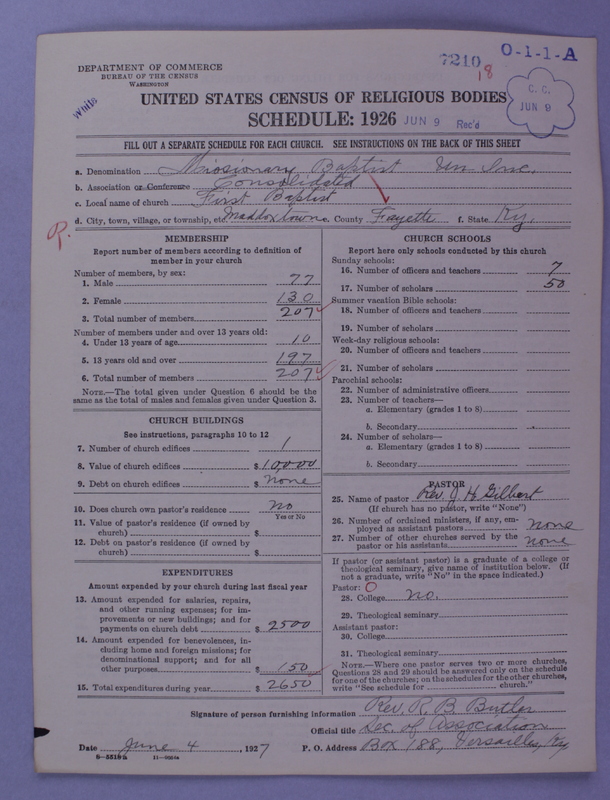 DEPARTMENT OF COMMERCE
BUREAU OF THE CENSUS
WASHINGTON
7210
18
O-1-1-A
White
C. C.
JUN 9
UNITED STATES CENSUS OF RELIGIOUS BODIES
SCHEDULE: 1926 JUN 9 Rec'd
FILL OUT A SEPARATE SCHEDULE FOR EACH CHURCH. SEE INSTRUCTIONS ON THE BACK OF THIS SHEET
a. Denomination Missionary Baptist Un Inc.
b. Association or Conference Consolidated
c. Local name of church First Baptist
d. City, town, village, or township, etc Maddoxtown e. County Fayette f. State Ky.
R.
MEMBERSHIP
Report number of members according to definition of
member in your church
Number of members, by sex:
1. Male 77
2. Female 130
3. Total number of members 207
Number of members under and over 13 years old:
4. Under 13 years of age 10
5. 13 years old and over 197
6. Total number of members 207
NOTE.—The total given under Question 6 should be the
same as the total of males and females given under Question 3.
CHURCH BUILDINGS
See instructions, paragraphs 10 to 12
7. Number of church edifices 1
8. Value of church edifices $ 10,000
9. Debt on church edifices $ none
10. Does church own pastor's residence no
Yes or No
11. Value of pastor's residence (if owned by
church) $
12. Debt on pastor's residence (if owned by
church) $
EXPENDITURES
Amount expended by your church during last fiscal year
13. Amount expended for salaries, repairs,
and other running expenses; for im-
provements or new buildings; and for
payments on church debt $ 2500
14. Amount expended for benevolences, in-
cluding home and foreign missions; for
denominational support; and for all
other purposes $ 150
15. Total expenditures during year $ 2650
CHURCH SCHOOLS
Report here only schools conducted by this church
Sunday schools:
16. Number of officers and teachers 7
17. Number of scholars 50
Summer vacation Bible schools:
18. Number of officers and teachers
19. Number of scholars
Week-day religious schools:
20. Number of officers and teachers
21. Number of scholars
Parochial schools:
22. Number of administrative officers
23. Number of teachers—
a. Elementary (grades 1 to 8)
b. Secondary
24. Number of scholars—
a. Elementary (grades 1 to 8)
b. Secondary
PASTOR
25. Name of pastor Rev. J. H. Gilbert
(If church has no pastor, write "None")
26. Number of ordained ministers, if any, em-
ployed as assistant pastors none
27. Number of other churches served by the
pastor or his assistants none
If pastor (or assistant pastor) is a graduate of a college or
theological seminary, give name of institution below. (If
not a graduate, write "No" in the space indicated.)
Pastor: O
28. College no.
29. Theological seminary
Assistant pastor:
30. College
31. Theological seminary
NOTE.—Where one pastor serves two or more churches,
Questions 28 and 29 should be answered only on the schedule
for one of the churches; on the schedules for the other churches,
write "See schedule for church."
Signature of person furnishing information Rev. R. B. Butler
Official title Sec. of Association
Date June 4, 1927 P. O. Address Box 188, Versailles, Ky